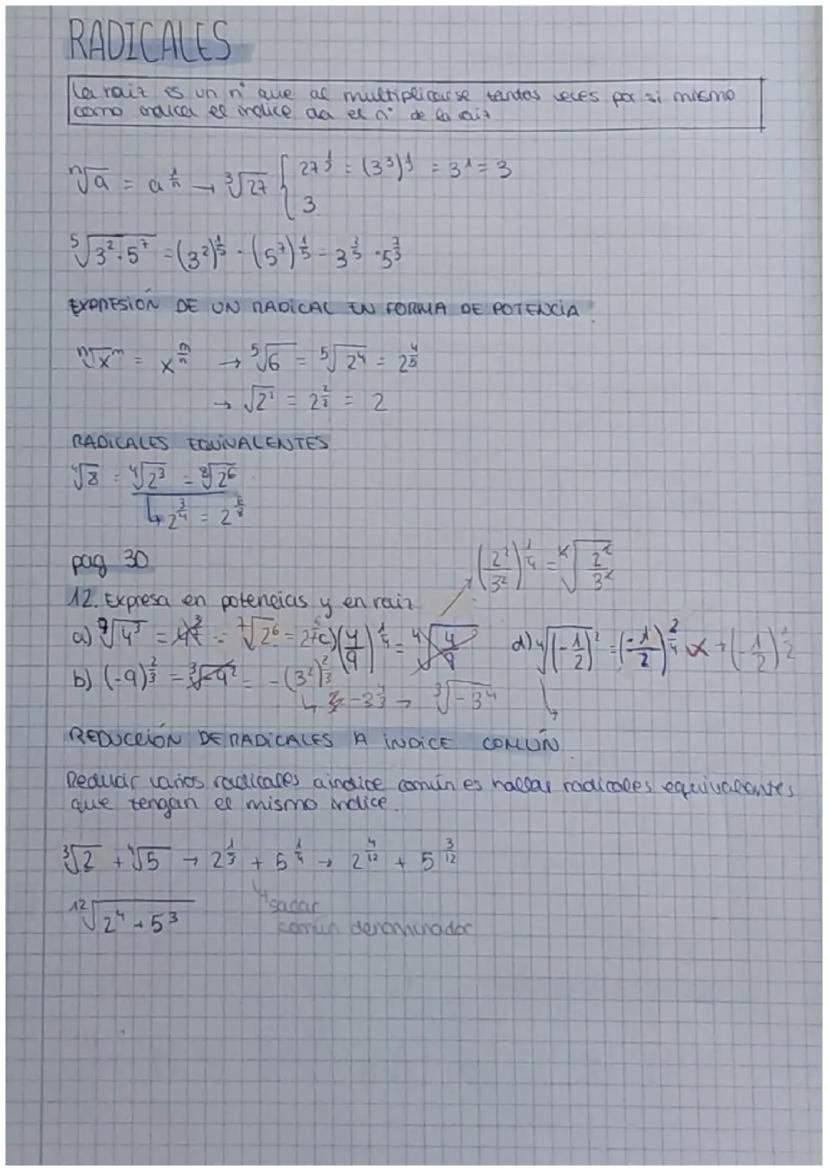 RADICALES
La raiz es un nº que al multiplicarse tantas veces por si mismo
como indica el indice da el nº de la raiz
ⁿ√a = a^(1/n) → ³√27 { 27^(1/3) = (3³)^(1/3) = 3¹ = 3
3
⁵√(3²·5⁷) = (3²)^(1/5) · (5⁷)^(1/5) = 3^(2/5) · 5^(7/5)
EXPRESIÓN DE UN RADICAL EN FORMA DE POTENCIA
ⁿ√x^m = x^(m/n) → ⁵√6 = ⁵√2⁴ = 2^(4/5)
→ √2² = 2^(2/2) = 2
RADICALES EQUIVALENTES
⁴√8 = ⁴√2³ = ⁸√2⁶
↳ 2^(3/4) = 2^(6/8)
pag 30
(2²/3²)^(1/4) = ⁴√(2²/3²)
12. Expresa en potencias y en raiz
a) ⁷√4³ = 4^(3/7) = ⁷√2⁶ = 2^(6/7) c) (4/9)^(1/4) = ⁴√(4/9) d) ⁴√(-1/2)² = (-1/2)^(2/4) → (-1/2)^(1/2)
b) (-9)^(2/3) = ³√-9² = -(3²)^(2/3)
↳ -3^(4/3) → ³√-3⁴
REDUCCIÓN DE RADICALES A INDICE COMÚN
Reducir varios radicales a indice común es hallar radicales equivalentes
que tengan el mismo indice.
³√2 + ⁴√5 → 2^(1/3) + 5^(1/4) → 2^(4/12) + 5^(3/12)
¹²√(2⁴+5³) ↳ sacar
común denominador